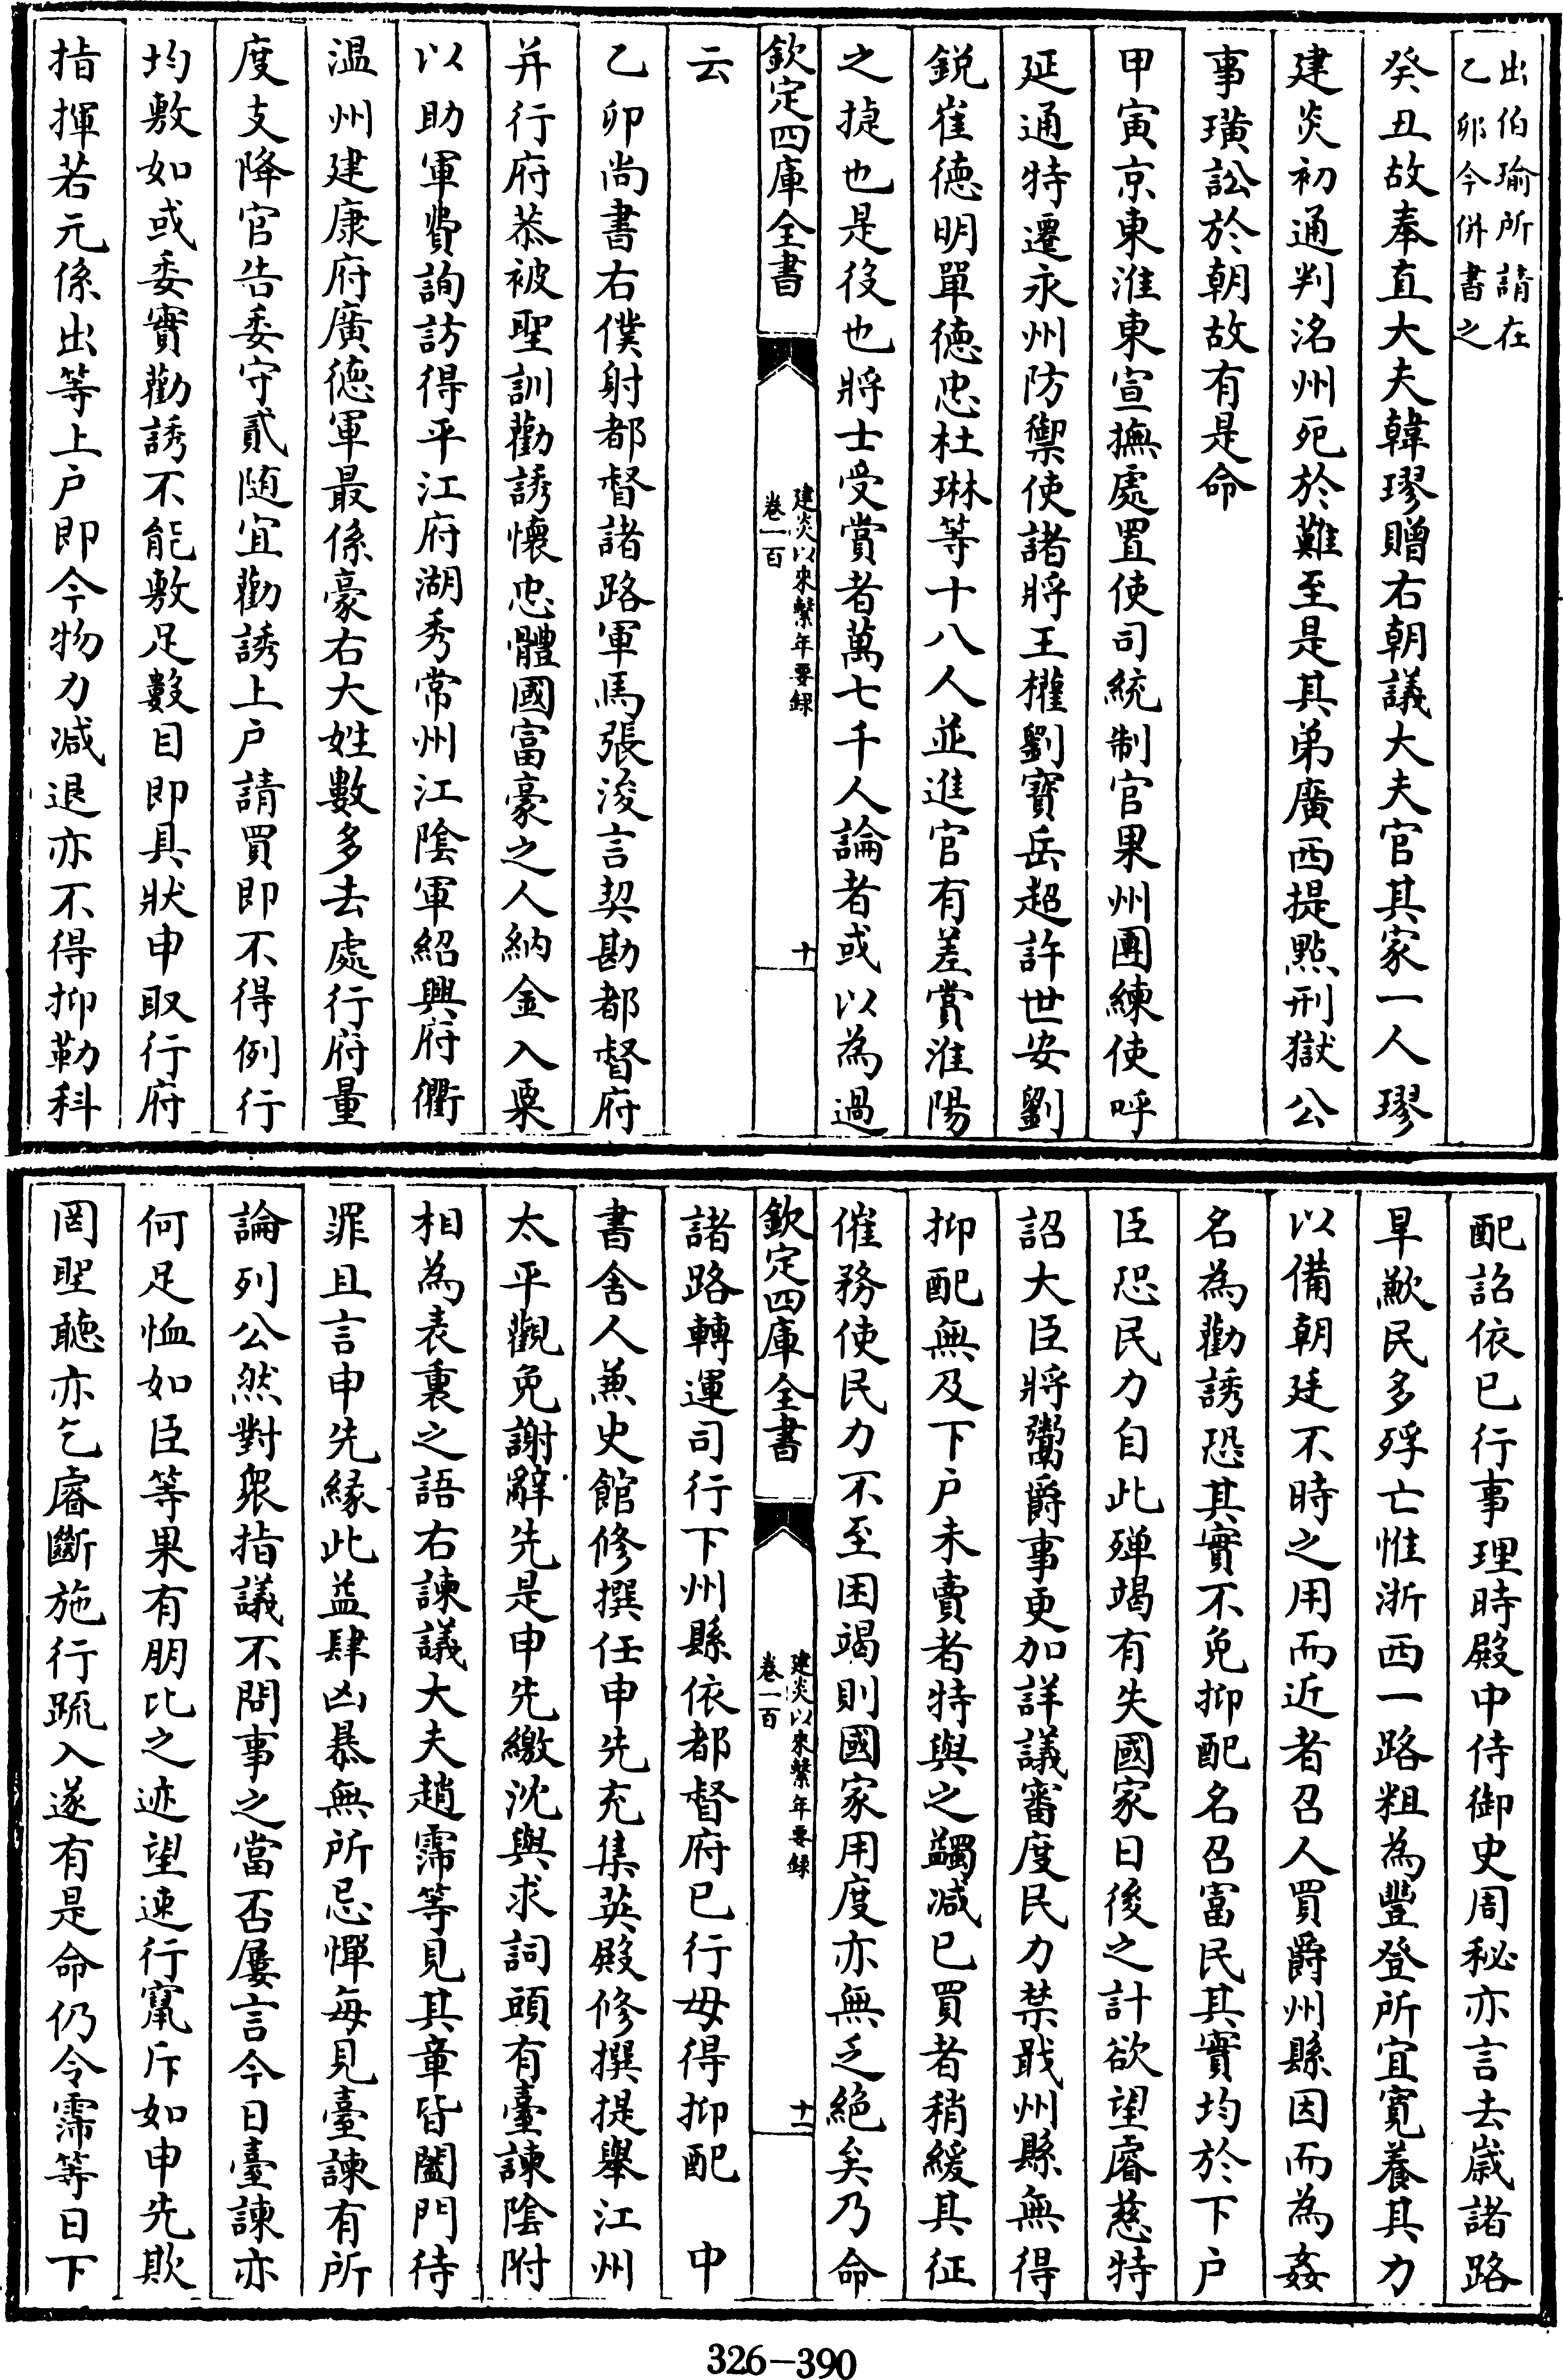 出伯瑜所請在
乙夘今併書之
癸丑故奉直大夫韓璆贈右朝議大夫官其家一人璆
建炎初通判洺州死於難至是其弟廣西提點刑獄公
事璜訟於朝故有是命
甲寅京東淮東宣撫處置使司統制官果州團練使呼
延通特遷永州防禦使諸將王權劉寶岳超許世安劉
鋭崔徳明單徳忠杜琳等十八人並進官有差賞淮陽
之捷也是役也將士受賞者萬七千人論者或以為過
欽定四庫全書
建炎以來繫年要録
卷一百
十
云
乙卯尚書右僕射都督諸路軍馬張浚言契勘都督府
并行府恭被聖訓勸誘懷忠體國富豪之人納金入粟
以助軍費詢訪得平江府湖秀常州江陰軍紹興府衢
温州建康府廣徳軍最係豪右大姓數多去處行府量
度支降官告委守貳随宜勸誘上户請買即不得例行
均敷如或委實勸誘不能敷足數目即具狀申取行府
指揮若元係出等上户即今物力减退亦不得抑勒科
配詔依已行事理時殿中侍御史周秘亦言去嵗諸路
旱歉民多殍亡惟浙西一路粗為豐登所宜寛養其力
以備朝廷不時之用而近者召人買爵州縣因而為姦
名為勸誘恐其實不免抑配名召富民其實均於下户
臣恐民力自此殫竭有失國家日後之計欲望睿慈特
詔大臣將鬻爵事更加詳議審度民力禁戢州縣無得
抑配無及下户未賣者特與之蠲减已買者稍緩其征
催務使民力不至困竭則國家用度亦無乏絶矣乃命
欽定四庫全書
建炎以來繫年要録
卷一百
十一
諸路轉運司行下州縣依都督府已行毋得抑配 中
書舍人兼史館修撰任申先充集英殿修撰提舉江州
太平觀免謝辭先是申先繳沈與求詞頭有臺諫陰附
相為表裏之語右諫議大夫趙霈等見其章皆闔門待
罪且言申先縁此益肆凶暴無所忌憚每見臺諫有所
論列公然對衆指議不問事之當否屢言今日臺諫亦
何足恤如臣等果有朋比之迹望速行竄斥如申先欺
罔聖聽亦乞睿斷施行疏入遂有是命仍令霈等日下
326-390